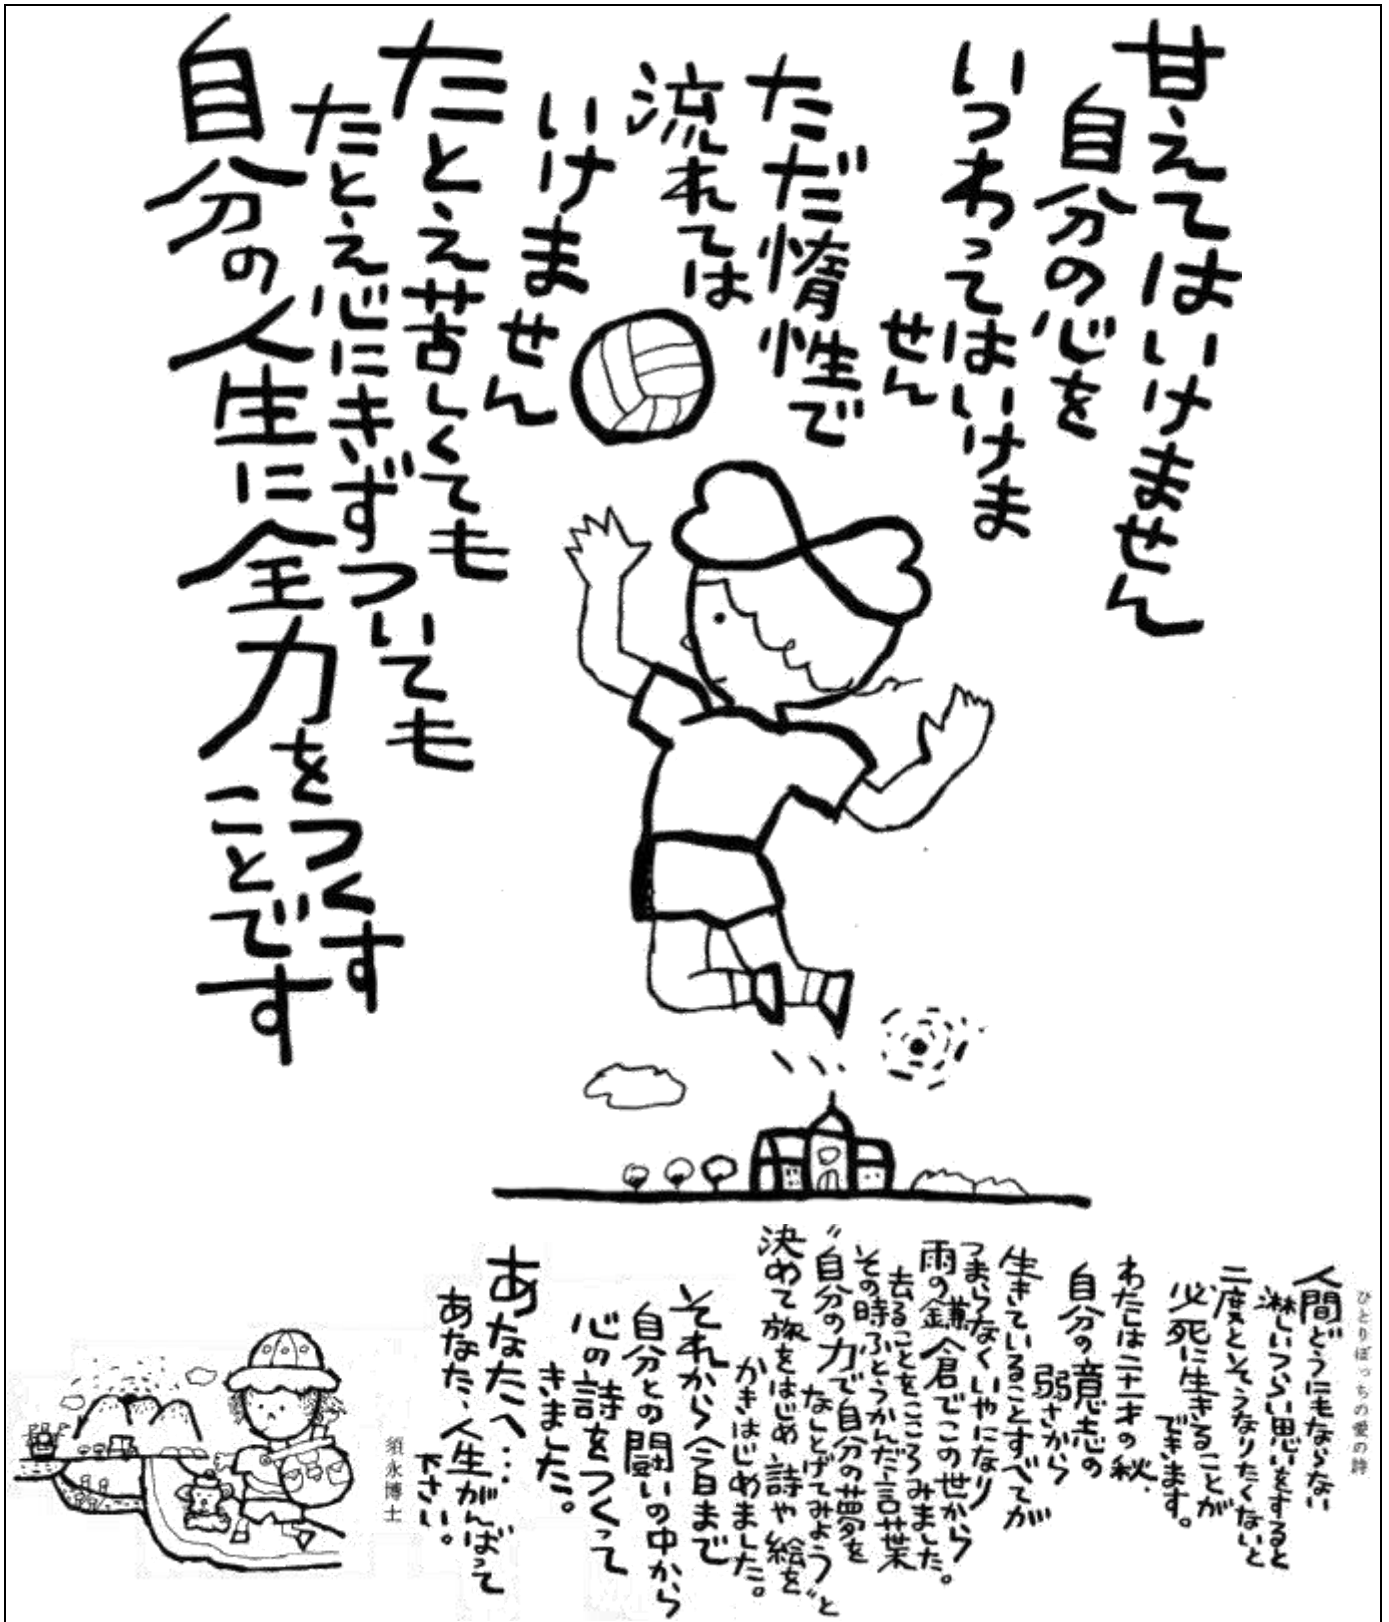 甘えてはいけません
自分の心を
いつわってはいけま
せん
ただ惰性で
流れては
いけま
せん
たとえ苦しくても
たとえ心にきずついても
自分の人生に全力をつくす
ことです
ひとりぼっちの愛の詩
人間どうにもならない
淋しいつらい思いをすると
二度とそうなりたくないと
必死に生きることが
できます。
わたしは二十一才の秋、
自分の意志の
弱さから
生きていることすべてが
つまらなくいやになり
雨の鎌倉でこの世から
去ることをこころみました。
その時ふとうかんだ言葉
〝自分の力で自分の夢を
なしとげてみよう〟と
決めて旅をはじめ詩や絵を
かきはじめました。
それから今日まで
自分との闘いの中から
心の詩をつくって
きました。
あなたへ…
あなた、人生がんばって
下さい。
須永博士